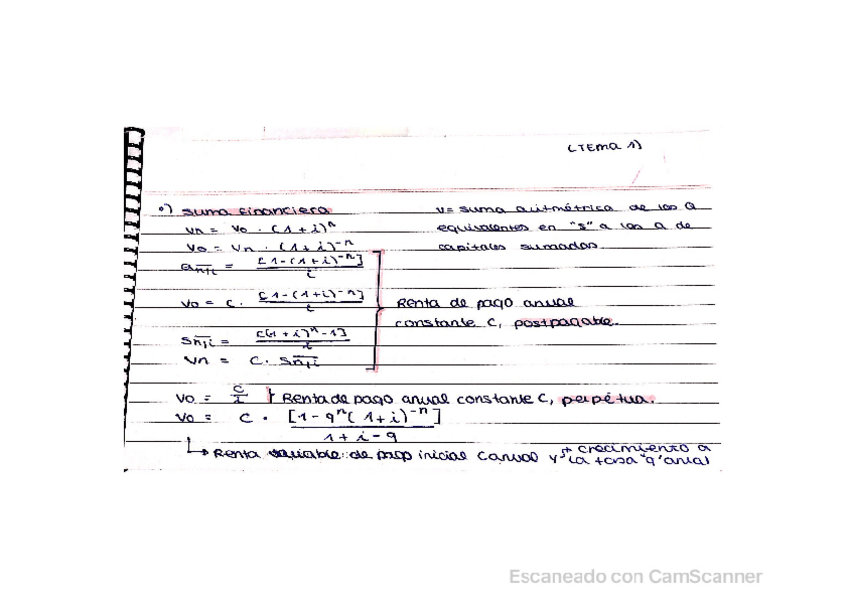 (TEMA 1)
•) suma financiera
Vn = Vo · (1+i)^n
Vo = Vn · (1+i)^-n
an̅|i = [1-(1+i)^-n] / i
Vo = C · [1-(1+i)^-n] / i
Sn̅|i = [(1+i)^n - 1] / i
Vn = C · Sn̅|i
V = suma aritmétrica de los Q
equivalentes en "s" a los Q de
capitales sumados.
Renta de pago anual
constante C, postpagable.
Vo = C / i } Renta de pago anual constante C, perpétua.
Vo = C · [1-q^n(1+i)^-n] / 1+i-q
↳ Renta variable de pago inicial C anual y + crecimiento a
la tasa "q" anual
Escaneado con CamScanner